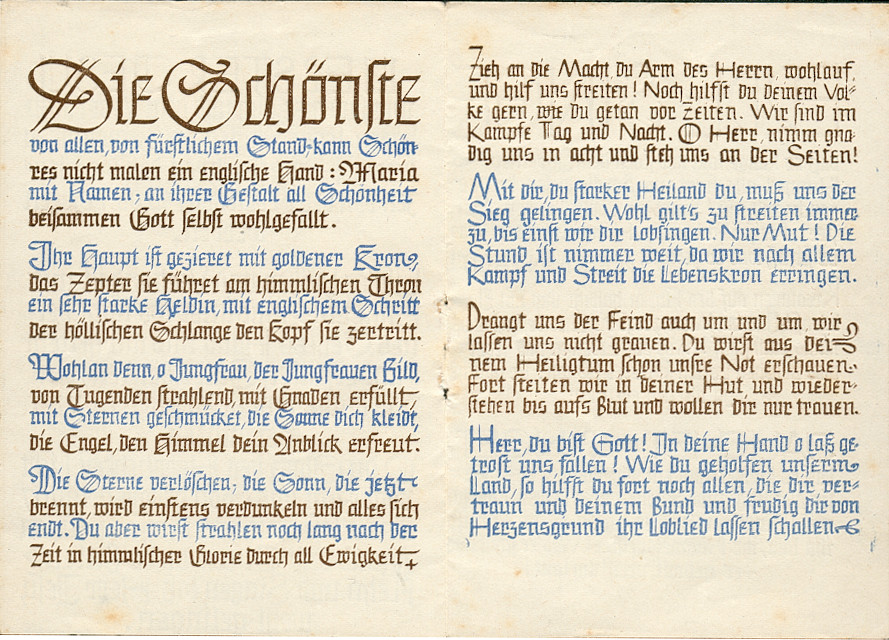 Die Schönste
von allen, von fürstlichem Stand, kann Schön-
res nicht malen ein englische Hand: Maria
mit Namen; an ihrer Gestalt all Schönheit
beisammen Gott selbst wohlgefallt.
Ihr Haupt ist gezieret mit goldener Kron,
das Zepter sie führet am himmlischen Thron
ein sehr starke Heldin, mit englischem Schritt
der höllischen Schlange den Kopf sie zertritt.
Wohlan denn, o Jungfrau, der Jungfrauen Bild,
von Tugenden strahlend, mit Gnaden erfüllt,
mit Sternen geschmücket, die Sonne dich kleidt,
die Engel, den Himmel dein Anblick erfreut.
Die Sterne verlöschen; die Sonn, die jetzt
brennt, wird einstens verdunkeln und alles sich
endt. Du aber wirst strahlen noch lang nach der
Zeit in himmlischer Glorie durch all Ewigkeit.
Zieh an die Macht, du Arm des Herrn, wohlauf
und hilf uns streiten! Noch hilfst du deinem Vol-
ke gern, wie du getan vor Zeiten. Wir sind im
Kampfe Tag und Nacht. O Herr, nimm gnä-
dig uns in acht und steh uns an der Seiten!
Mit dir, du starker Heiland du, muß uns der
Sieg gelingen. Wohl gilt's zu streiten immer-
zu, bis einst wir dir lobsingen. Nur Mut! Die
Stund ist nimmer weit, da wir nach allem
Kampf und Streit die Lebenskron erringen.
Drangt uns der Feind auch um und um, wir
lassen uns nicht grauen. Du wirst aus dei-
nem Heiligtum schon unsre Not erschauen.
Fort steiten wir in deiner Hut und wieder-
stehen bis aufs Blut und wollen dir nur trauen.
Herr, du bist Gott! In deine Hand o laß ge-
trost uns fallen! Wie du geholfen unserm
Land, so hilfst du fort noch allen, die dir ver-
traun und deinem Bund und frudig dir von
Herzensgrund ihr Loblied lassen schallen